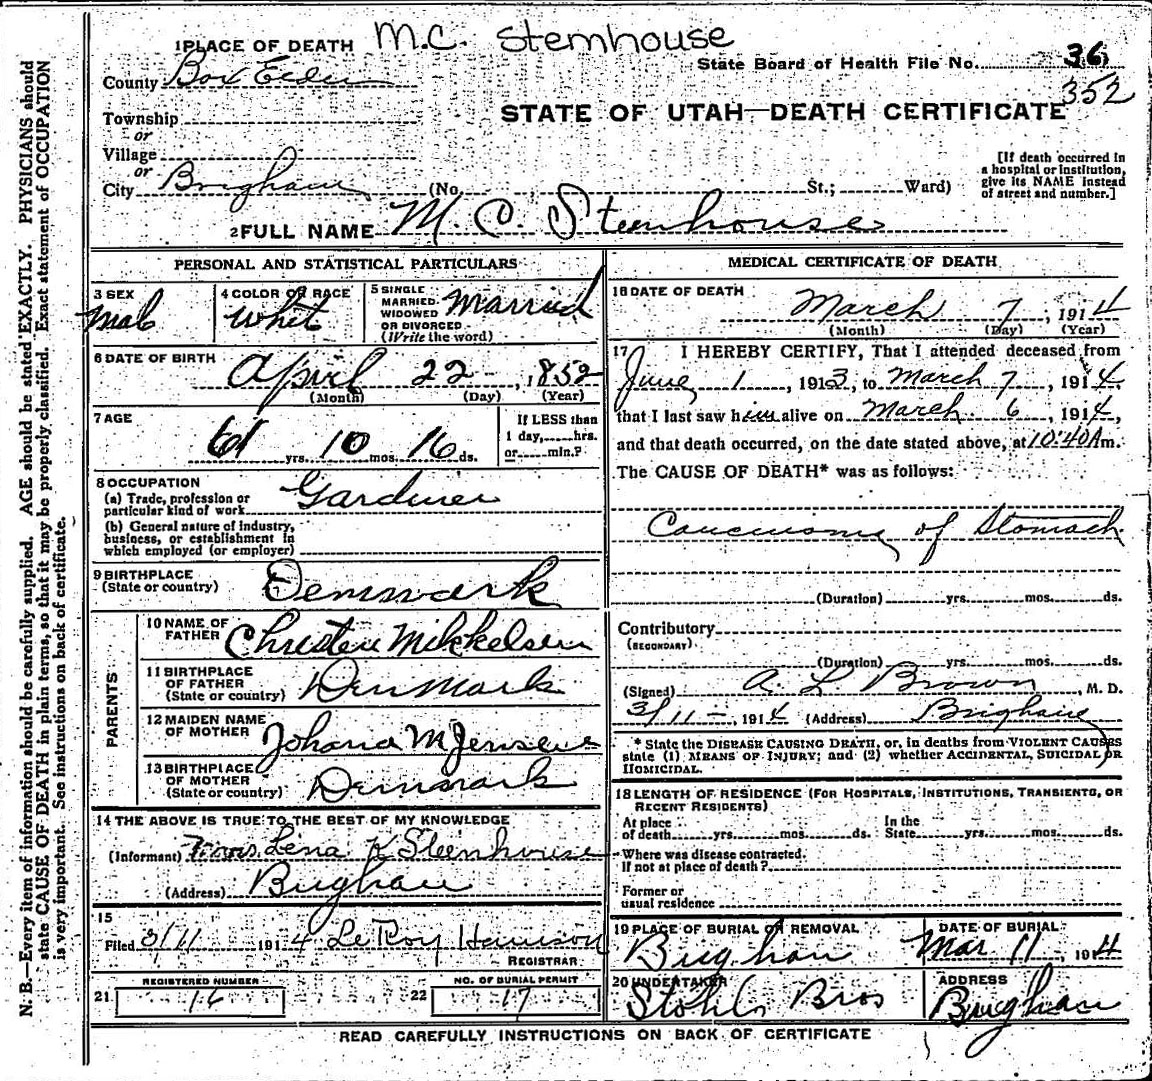 M.C. Stemhouse
1 PLACE OF DEATH
State Board of Health File No. 36
352
County Box Elder
STATE OF UTAH—DEATH CERTIFICATE
Township
or
Village
or
City Brigham (No. St.; Ward)
[If death occurred in
a hospital or institution,
give its NAME instead
of street and number.]
2 FULL NAME M. C. Steenhouse
PERSONAL AND STATISTICAL PARTICULARS
3 SEX
Male
4 COLOR OR RACE
White
5 SINGLE
MARRIED
WIDOWED
OR DIVORCED
(Write the word)
Married
6 DATE OF BIRTH
April 22, 1852
(Month) (Day) (Year)
7 AGE
61 yrs. 10 mos. 16 ds.
If LESS than
1 day,.....hrs.
or.....min.?
8 OCCUPATION
(a) Trade, profession or
particular kind of work Gardiner
(b) General nature of industry,
business, or establishment in
which employed (or employer)
9 BIRTHPLACE
(State or country) Denmark
PARENTS
10 NAME OF
FATHER Christen Mikkelsen
11 BIRTHPLACE
OF FATHER
(State or country) Denmark
12 MAIDEN NAME
OF MOTHER Johana M Jensen
13 BIRTHPLACE
OF MOTHER
(State or country) Denmark
14 THE ABOVE IS TRUE TO THE BEST OF MY KNOWLEDGE
(Informant) Mrs. Lena K Steenhouse
(Address) Brigham
15
Filed 3/11 1914 LeRoy Harrison
REGISTRAR
REGISTERED NUMBER
21 16
NO. OF BURIAL PERMIT
22 17
MEDICAL CERTIFICATE OF DEATH
16 DATE OF DEATH
March 7, 1914
(Month) (Day) (Year)
17 I HEREBY CERTIFY, That I attended deceased from
June 1, 1913, to March 7, 1914,
that I last saw him alive on March 6, 1914,
and that death occurred, on the date stated above, at 10:40 A m.
The CAUSE OF DEATH* was as follows:
Carcinoma of Stomach
(Duration) yrs. mos. ds.
Contributory
(SECONDARY)
(Duration) yrs. mos. ds.
(Signed) A. L. Brown, M. D.
3/11 -, 1914 (Address) Brigham
* State the DISEASE CAUSING DEATH, or, in deaths from VIOLENT CAUSES
state (1) MEANS OF INJURY; and (2) whether ACCIDENTAL, SUICIDAL OR
HOMICIDAL.
18 LENGTH OF RESIDENCE (FOR HOSPITALS, INSTITUTIONS, TRANSIENTS, OR
RECENT RESIDENTS)
At place
of death yrs. mos. ds.
In the
State yrs. mos. ds.
Where was disease contracted.
If not at place of death?
Former or
usual residence
19 PLACE OF BURIAL OR REMOVAL
Brigham
DATE OF BURIAL
Mar 11, 1914
20 UNDERTAKER
Stohl Bros
ADDRESS
Brigham
READ CAREFULLY INSTRUCTIONS ON BACK OF CERTIFICATE
N. B.—Every item of information should be carefully supplied. AGE should be stated EXACTLY. PHYSICIANS should
state CAUSE OF DEATH in plain terms, so that it may be properly classified. Exact statement of OCCUPATION
is very important. See instructions on back of certificate.